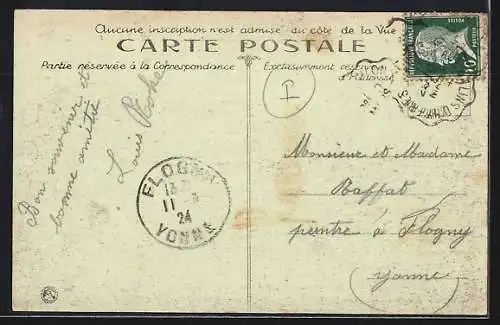 Aucune inscription n'est admise du côté de la Vue
CARTE POSTALE
Partie réservée à la Correspondance
Exclusivement réservé à l'Adresse
I
Bon souvenir et
bonne amitié
Louis
FLOGNY
13
11
24
YONNE
Monsieur et Madame
Raffat
peintre à Flogny
Yonne